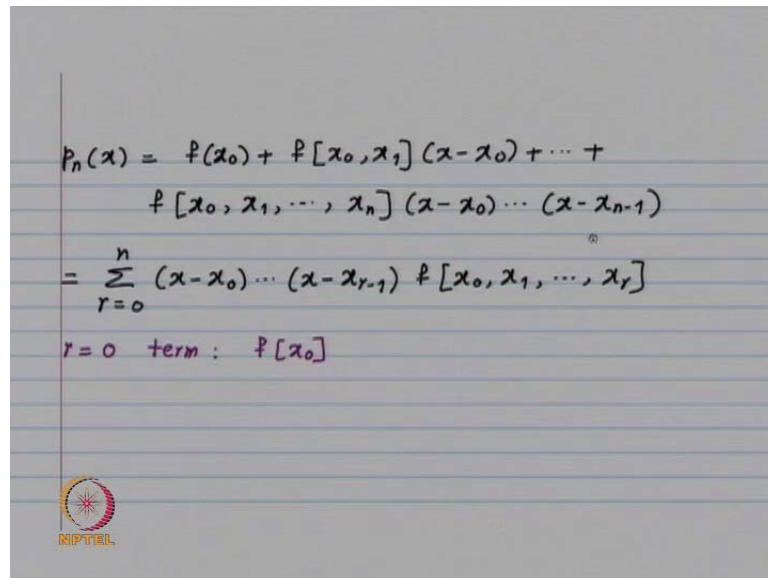 pₙ(x) = f(x₀) + f[x₀, x₁] (x-x₀) + ⋯ +
f[x₀, x₁, ⋯, xₙ] (x-x₀) ⋯ (x-xₙ₋₁)
= n∑r=0 (x-x₀) ⋯ (x-xᵣ₋₁) f[x₀, x₁, ⋯, xᵣ]
r=0 term : f[x₀]
NPTEL